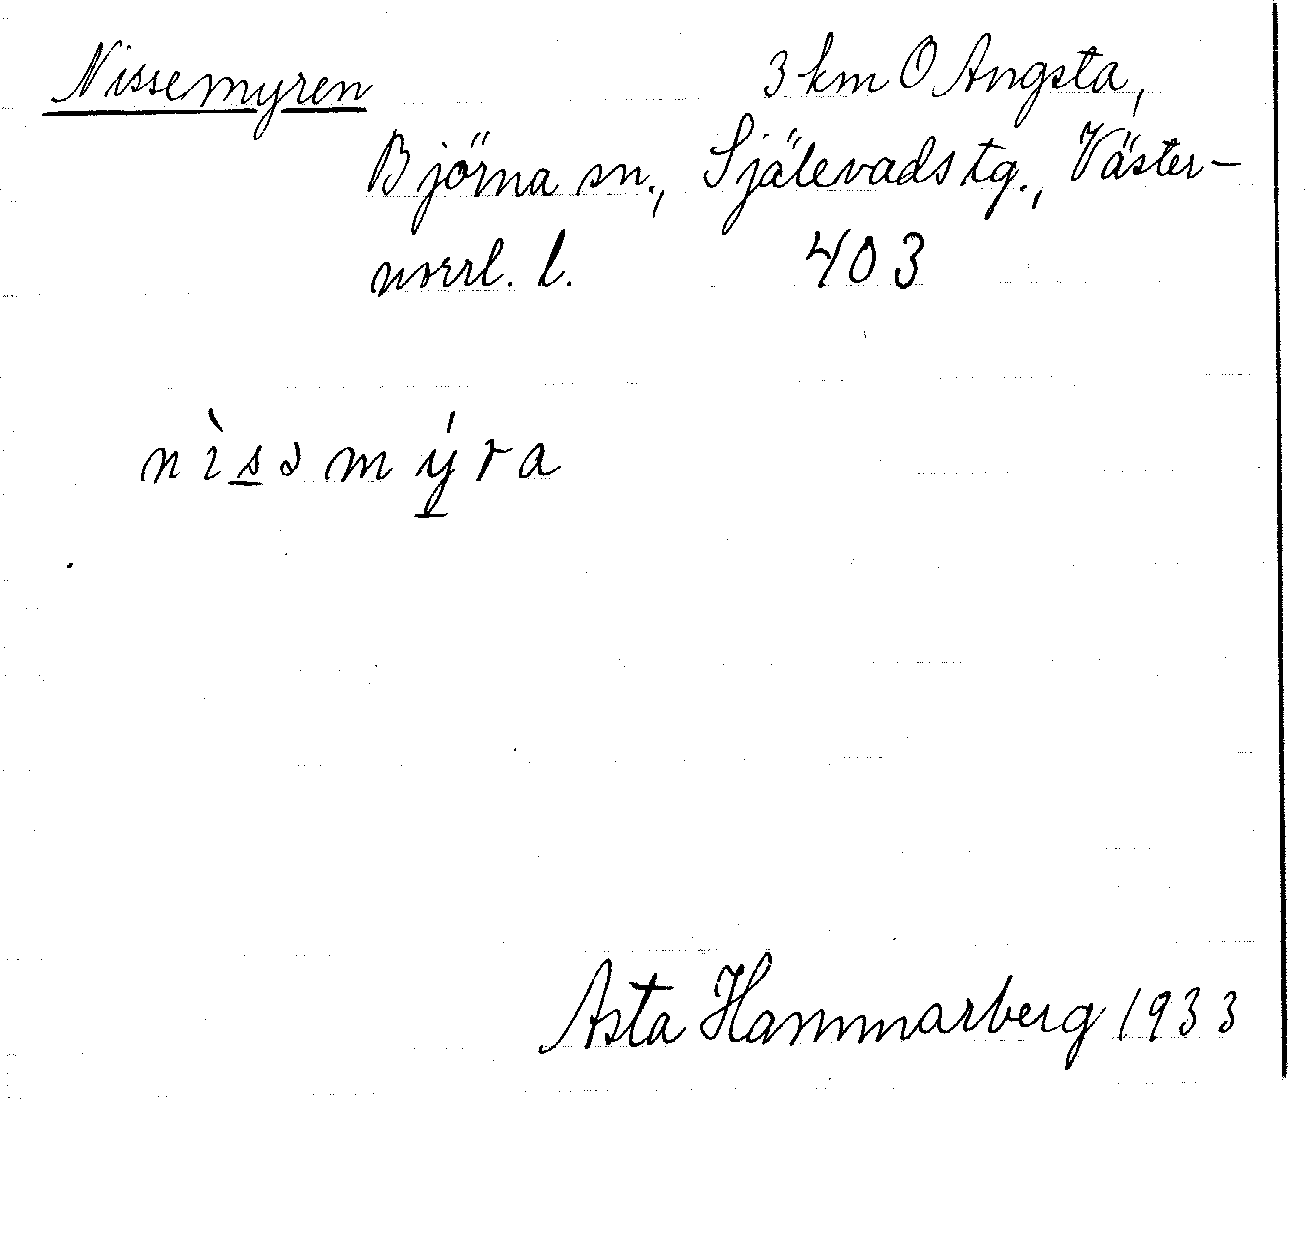 Nissemyren 3 km O Angsta,
Björna sn., Själevads tg., Väster-
norrl. l. 403
nìsəmýra
Asta Hammarberg 1933